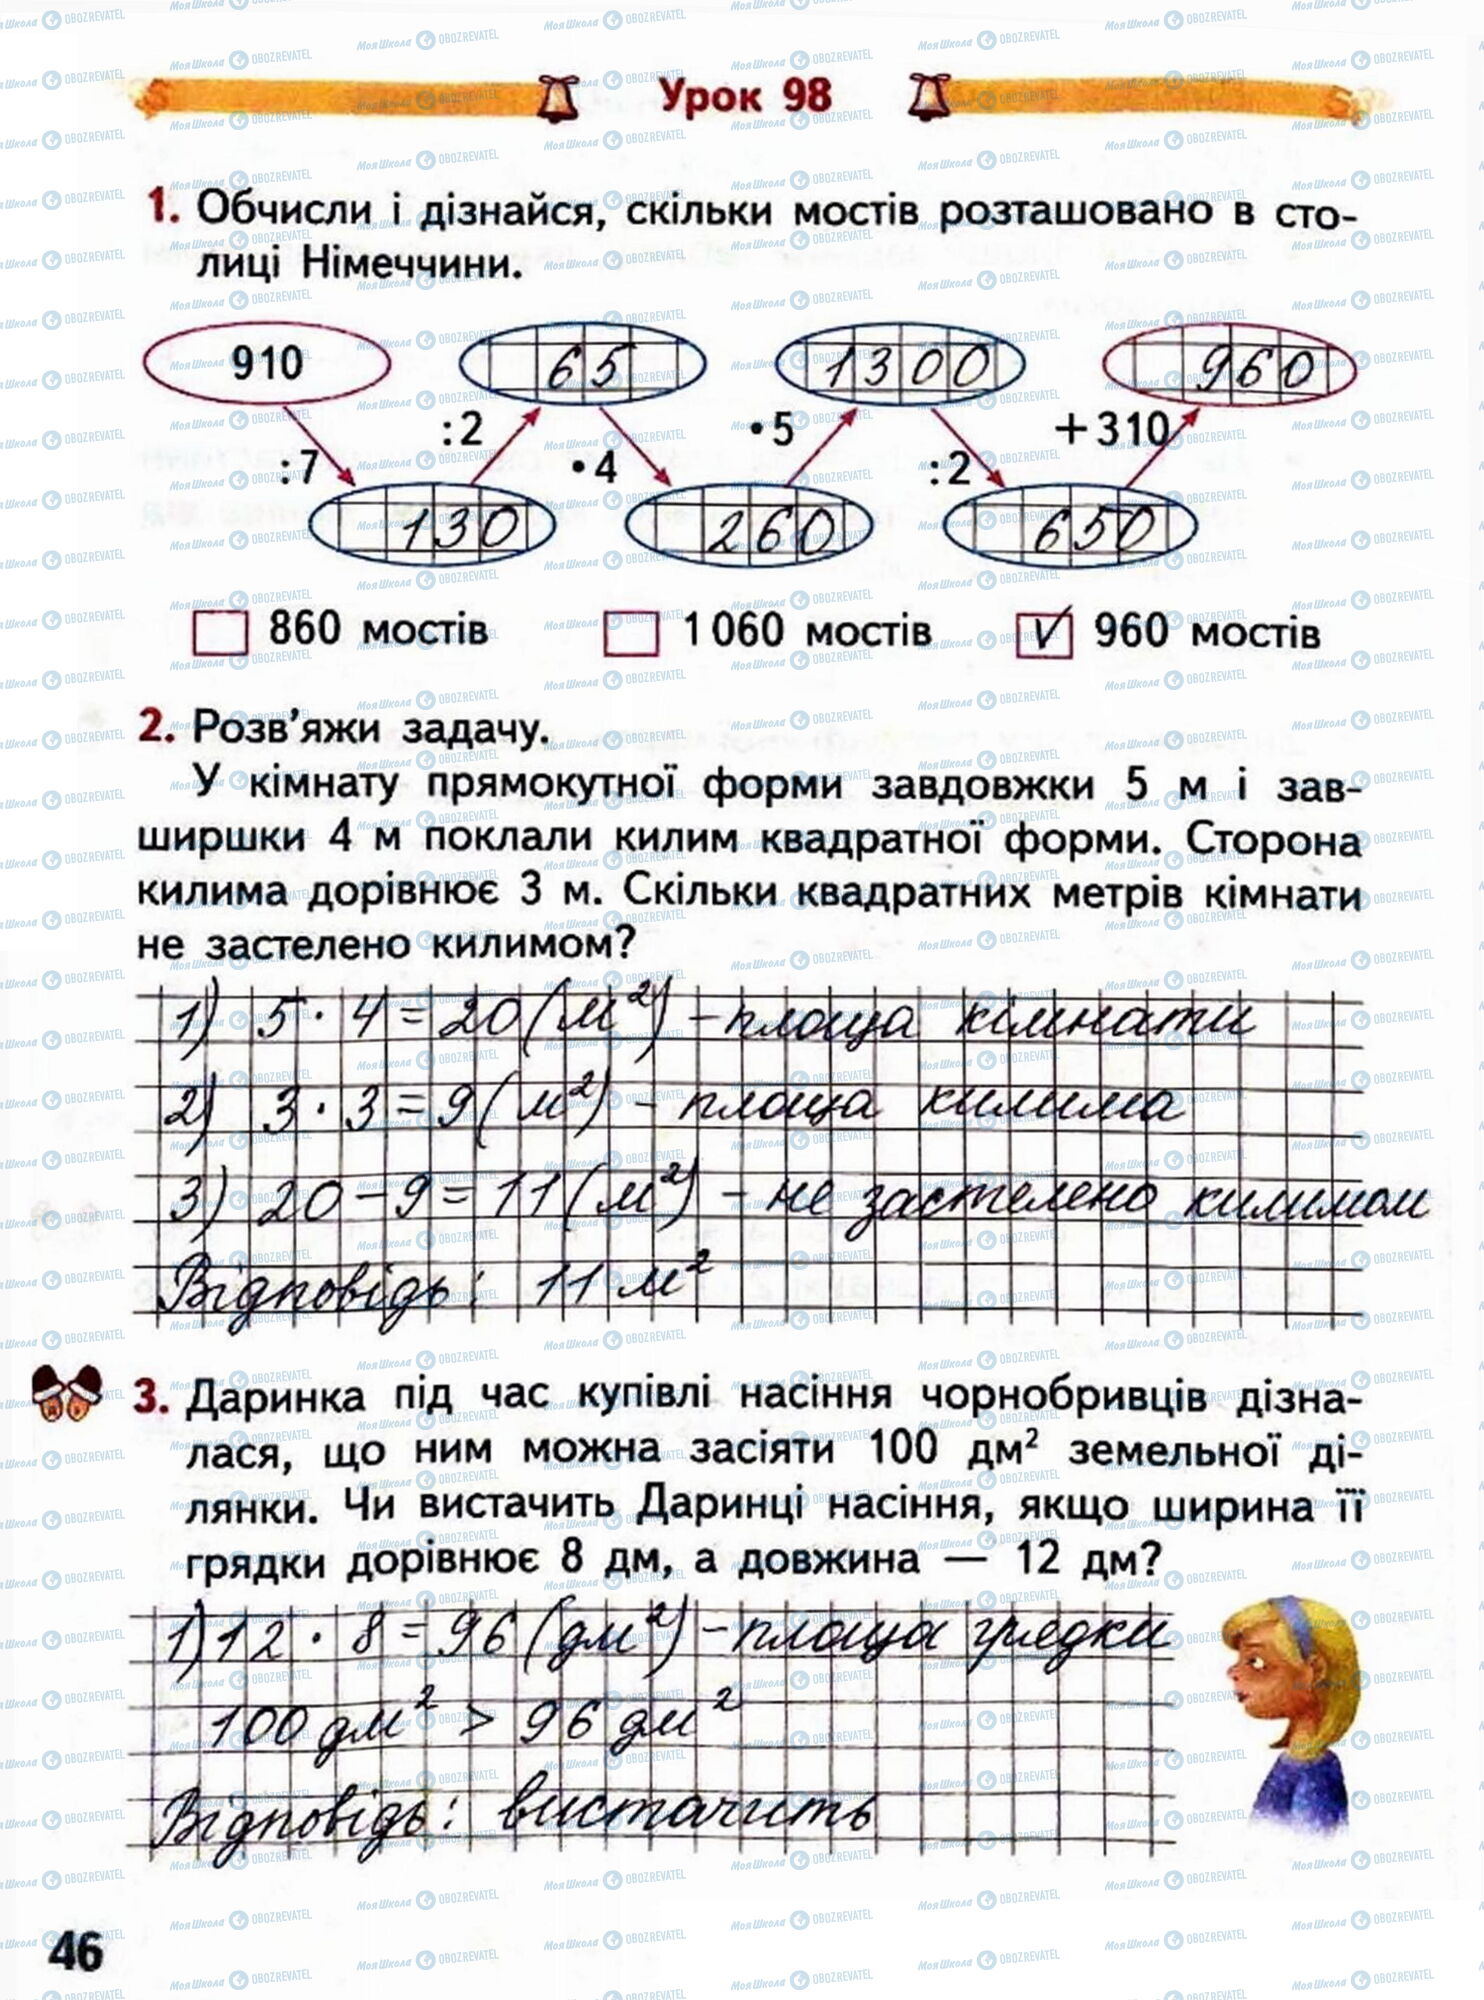 Урок 98
1. Обчисли і дізнайся, скільки мостів розташовано в сто-
лиці Німеччини.
910 65 1300 960
:7 :2 •4 •5 :2 +310
130 260 650
860 мостів 1 060 мостів V 960 мостів
2. Розв'яжи задачу.
У кімнату прямокутної форми завдовжки 5 м і зав-
ширшки 4 м поклали килим квадратної форми. Сторона
килима дорівнює 3 м. Скільки квадратних метрів кімнати
не застелено килимом?
1) 5 · 4 = 20 (м²) – площа кімнати
2) 3 · 3 = 9 (м²) – площа килима
3) 20 – 9 = 11 (м²) – не застелено килимом
Відповідь: 11 м²
3. Даринка під час купівлі насіння чорнобривців дізна-
лася, що ним можна засіяти 100 дм² земельної ді-
лянки. Чи вистачить Даринці насіння, якщо ширина її
грядки дорівнює 8 дм, а довжина — 12 дм?
1) 12 · 8 = 96 (дм²) – площа грядки
100 дм² > 96 дм²
Відповідь: вистачить
46
МояШкола OBOZREVATEL